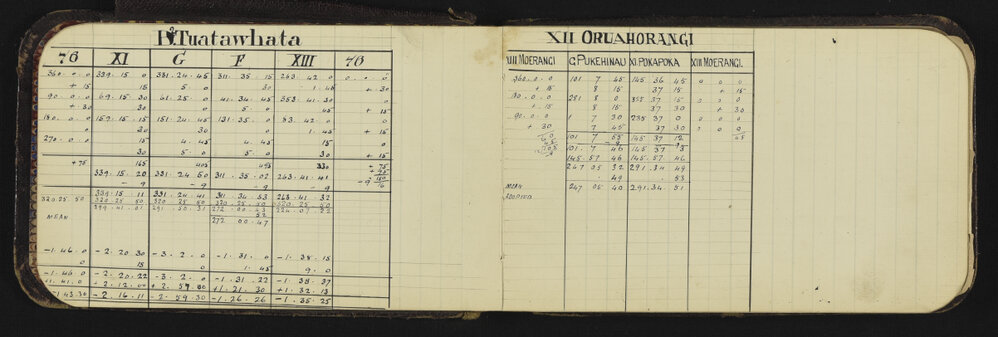 P. Tuatawhata
76 XI G F XIII 76
360.0.0 339.15.0 331.24.45 311.35.15 263.42.0 0.0.0
+15 15 5.0 30 1.45 +30
90.0.0 69.15.30 61.25.0 41.34.45 353.41.30 0
+30 30 0 5.0 45 +15
180.0.0 159.15.15 151.24.45 131.35.0 83.42.0 0
0 30 30 0 1.45 +15
270.0.0 15 4.45 4.45 15 0
30 5.0 5.0 30 +15
+75 165 405 495 330 +75
339.15.20 331.24.50 311.35.02 263.41.41
-9 -9 -9 -9 -9
339.15.11 331.24.41 311.34.53 263.41.32
320.25.50 320.25.50 320.25.50 320.25.50 320.25.50
299.41.01 291.50.31 272.00.43 224.07.22
52
MEAN 272.00.47
-1.46.0 -2.20.30 -3.2.0 -1.31.0 -1.38.15
0 15 0 1.45 9.0
-1.46.0 -2.20.22 -3.2.0 -1.31.22 -1.38.37
-2.12.00 +2.57.00 +1.21.30 +1.32.13
-2.16.11 -2.59.30 -1.26.26 -1.35.25
XII ORUAHORANGI
XIII MOERANGI G PUKEHINAU XI. POKAPOKA XIII MOERANGI.
360.0.0 101 7 45 145 36 45 0 0 0
+15 8 15 37 15 +15
30.0.0 281 8 0 325 37 15 0 0 0
+15 8 15 37 30 +30
90.0.0 1 7 30 235 37 0 0 0 0
+30 7 45 37 30 0 0 0
101 7 55 145 37 12 45
101.7.46 145 37 3
145.57.46 145.57.46
247 05 32 291.34 49
49 53
MEAN 247 05 40 291.34.51
ADOPTED